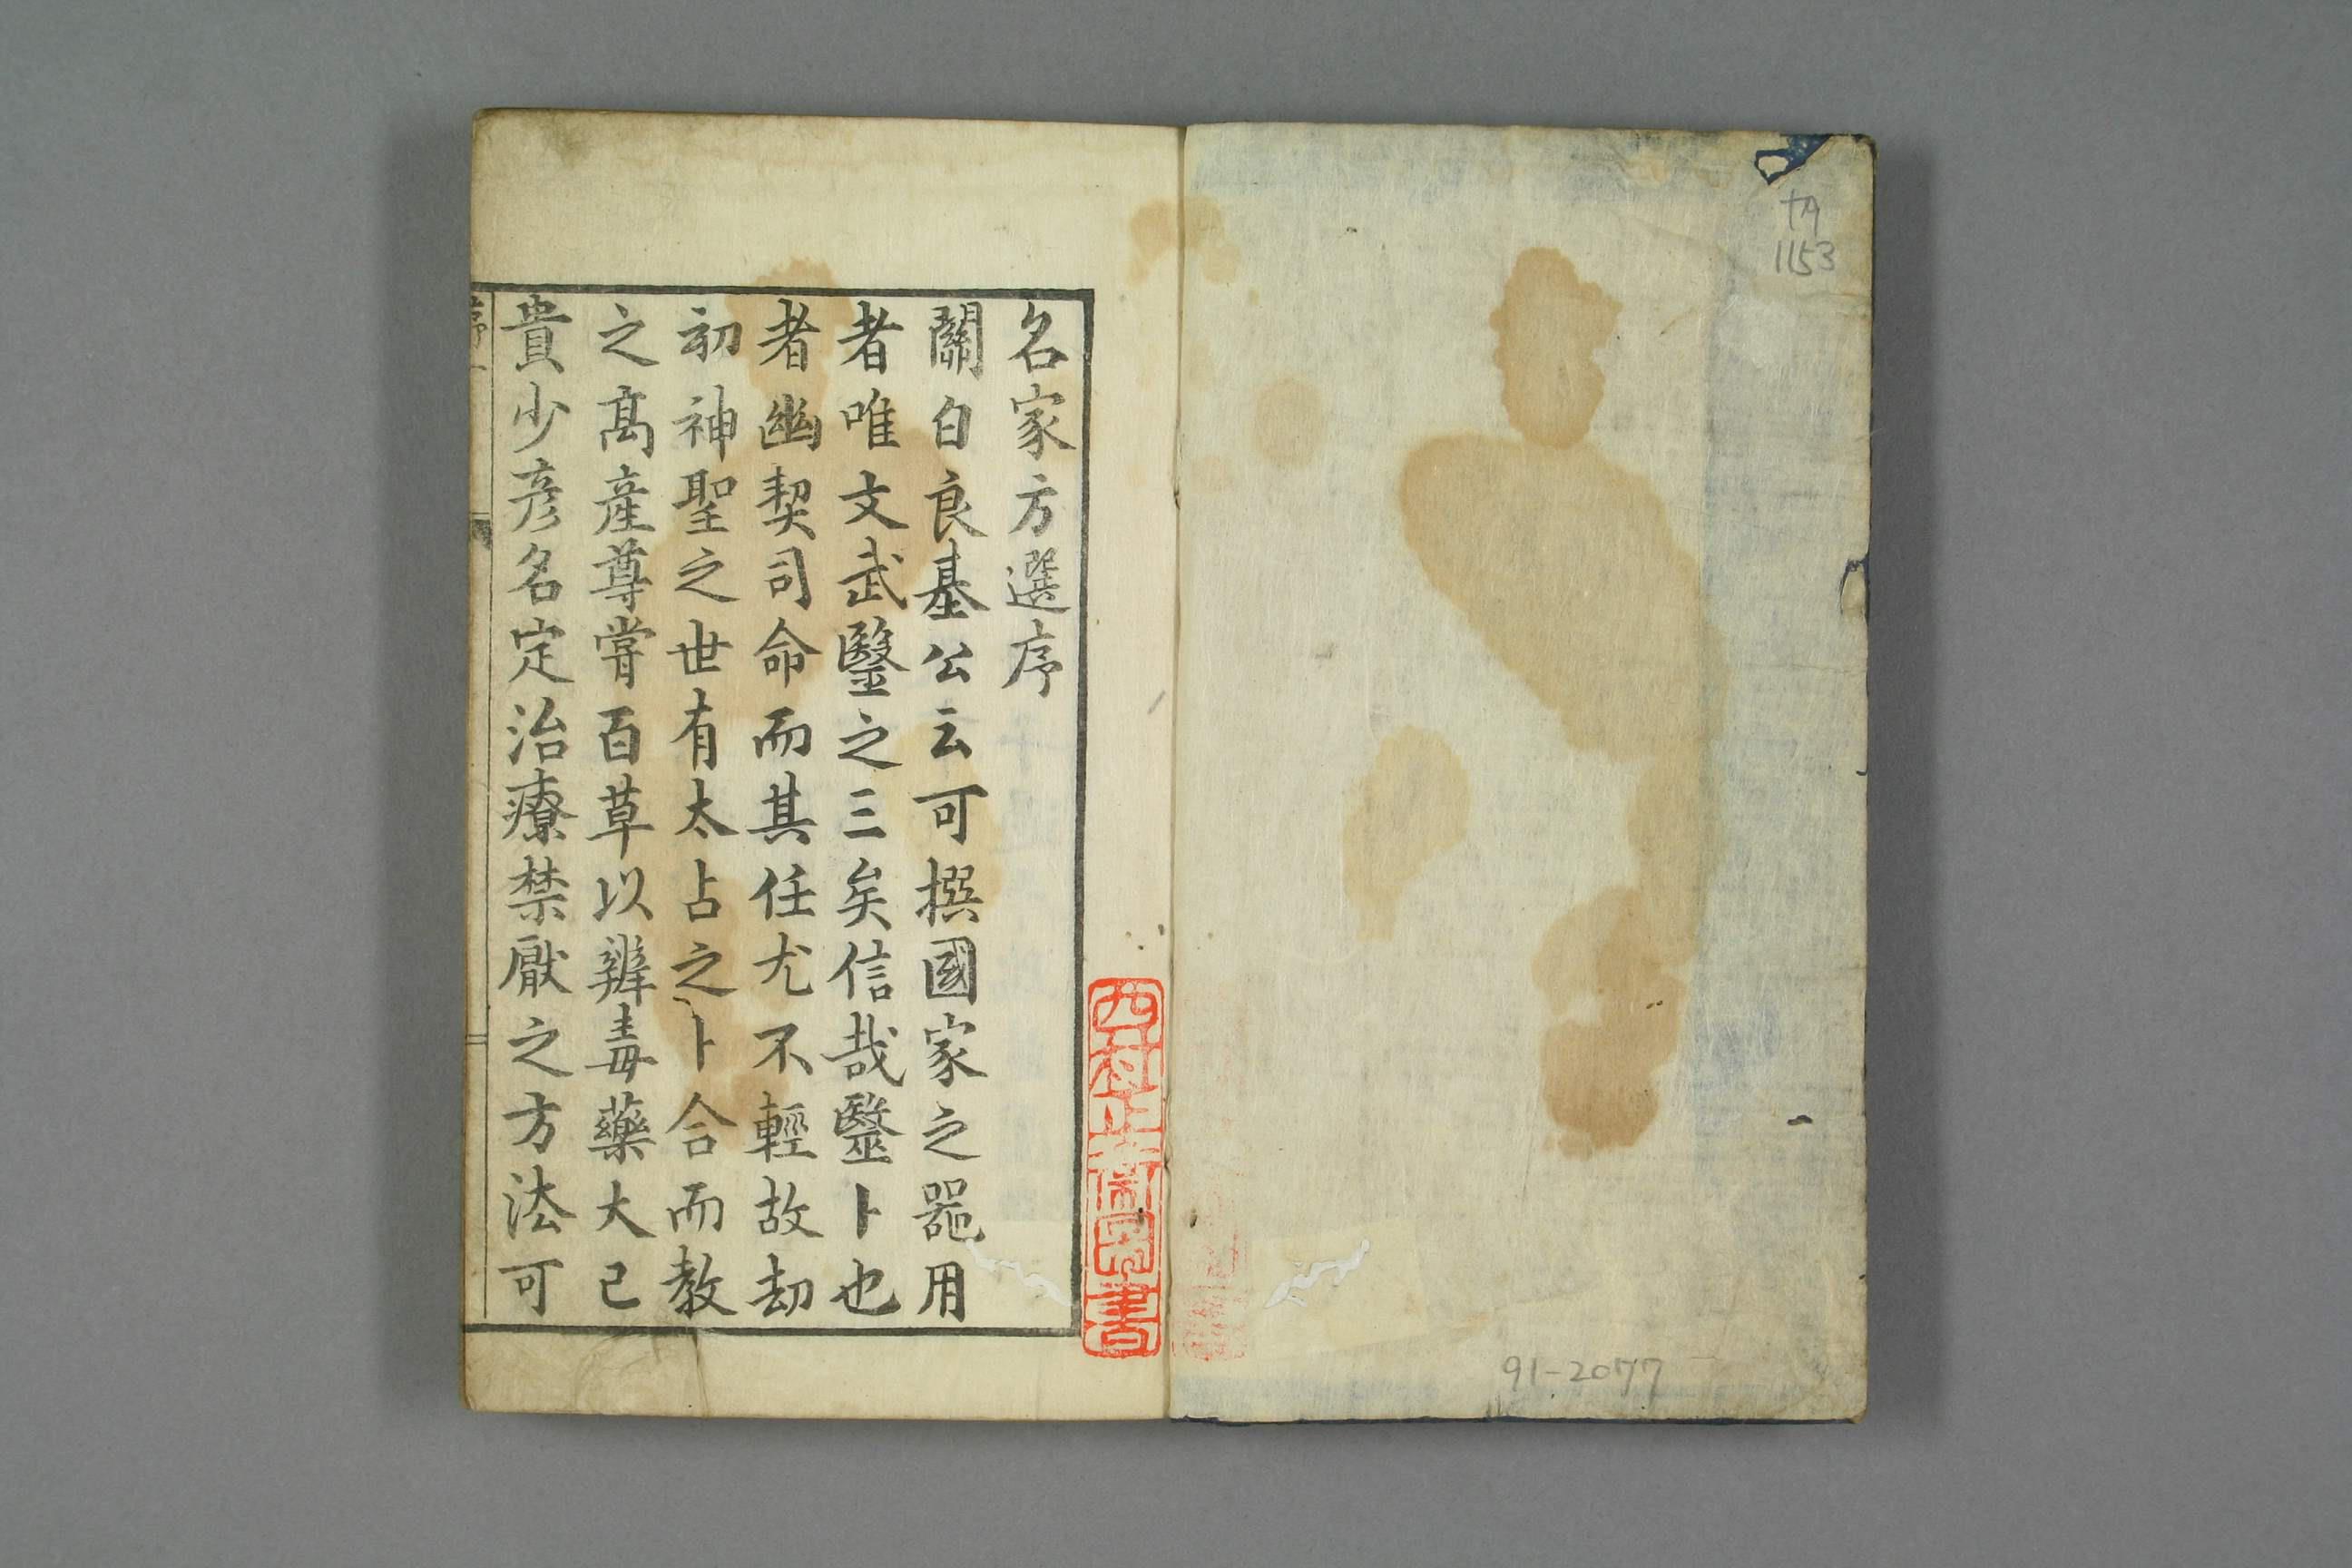 ナ9
1153
91-2077
名家方選序
關白良基公云可撰國家之噐用
者唯文武醫之三矣信哉毉卜也
者幽契司命而其任尤不輕故劫
初神聖之世有太占之卜合而教
之高產尊甞百草以辨毒藥大已
貴少彦名定治療禁厭之方法可
序一